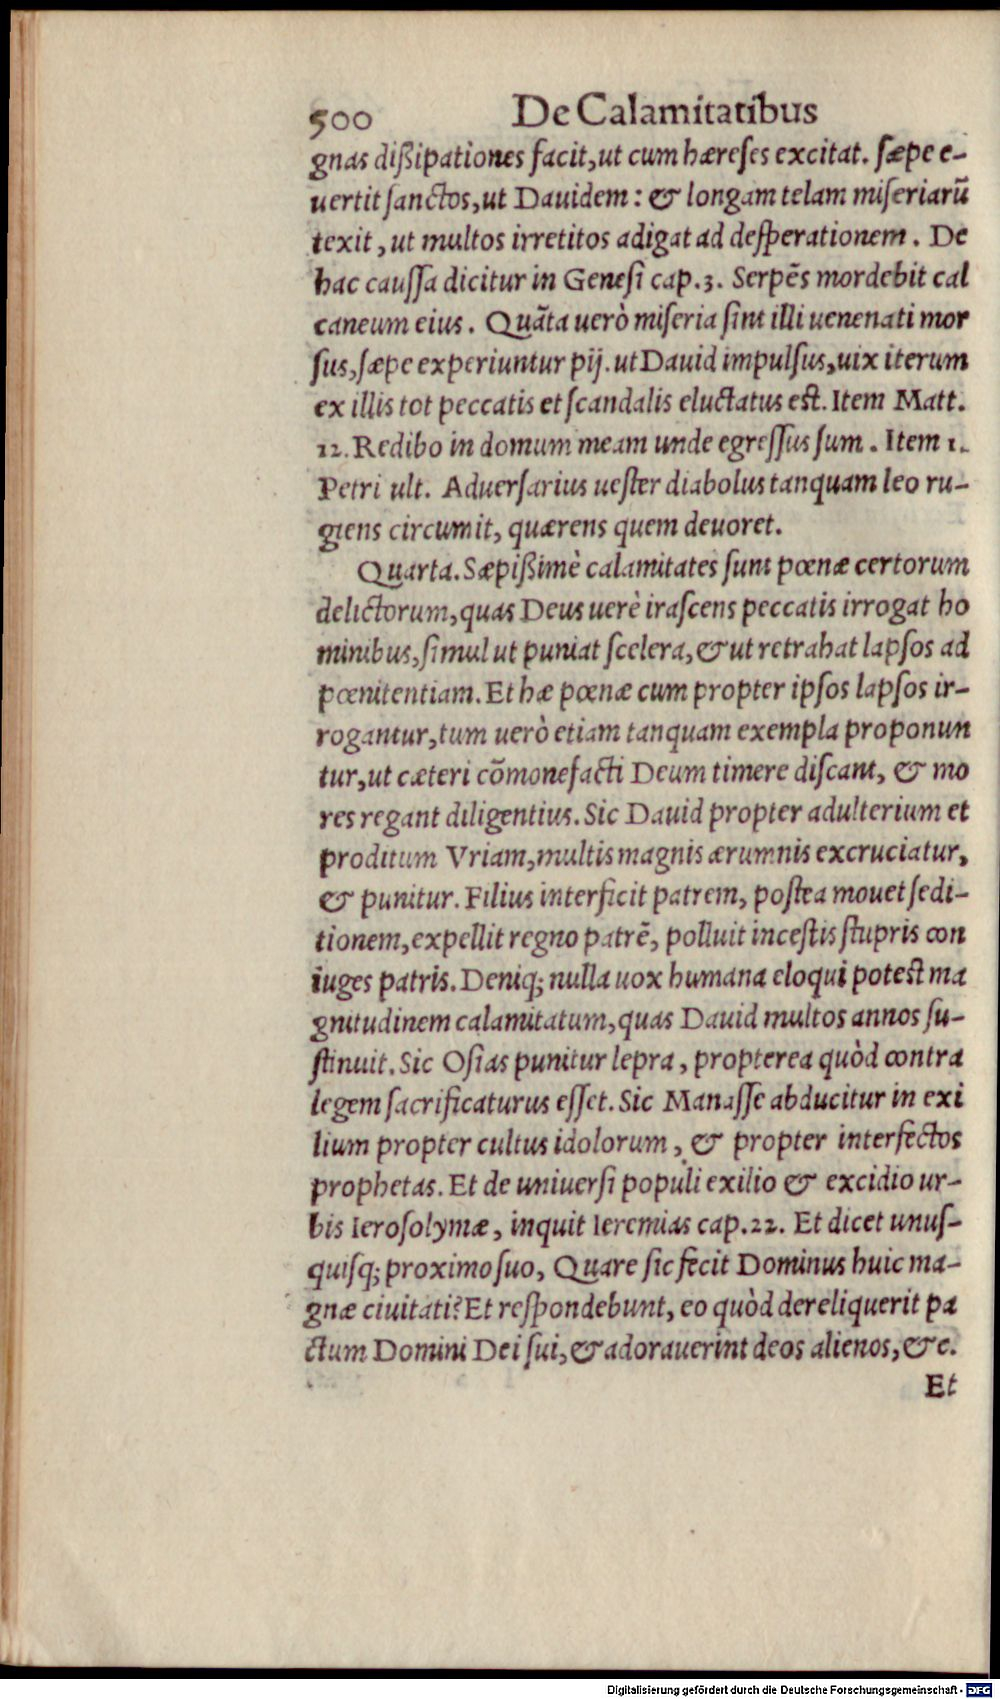 500 De Calamitatibus
gnas dißipationes facit, ut cum hæreses excitat. sæpe e-
uertit sanctos, ut Dauidem: & longam telam miseriarũ
texit, ut multos irretitos adigat ad desperationem. De
hac caussa dicitur in Genesi cap.3. Serpẽs mordebit cal
caneum eius. Quãta uerò miseria sint illi uenenati mor
sus, sæpe experiuntur pij. ut Dauid impulsus, uix iterum
ex illis tot peccatis et scandalis eluctatus est. Item Matt.
12. Redibo in domum meam unde egressus sum. Item 1.
Petri ult. Aduersarius uester diabolus tanquam leo ru-
giens circumit, quærens quem deuoret.
Quarta. Sæpißimè calamitates sunt pœnæ certorum
delictorum, quas Deus uerè irascens peccatis irrogat ho
minibus, simul ut puniat scelera, & ut retrahat lapsos ad
pœnitentiam. Et hæ pœnæ cum propter ipsos lapsos ir-
rogantur, tum uerò etiam tanquam exempla proponun
tur, ut cæteri cõmonefacti Deum timere discant, & mo
res regant diligentius. Sic Dauid propter adulterium et
proditum Vriam, multis magnis ærumnis excruciatur,
& punitur. Filius interficit patrem, postea mouet sedi-
tionem, expellit regno patrẽ, polluit incestis stupris con
iuges patris. Deniq; nulla uox humana eloqui potest ma
gnitudinem calamitatum, quas Dauid multos annos su-
stinuit. Sic Osias punitur lepra, propterea quòd contra
legem sacrificaturus esset. Sic Manasse abducitur in exi
lium propter cultus idolorum, & propter interfectos
prophetas. Et de uniuersi populi exilio & excidio ur-
bis Ierosolymæ, inquit Ieremias cap.22. Et dicet unus-
quisq; proximo suo, Quare sic fecit Dominus huic ma-
gnæ ciuitati? Et respondebunt, eo quòd dereliquerit pa
ctum Domini Dei sui, & adorauerint deos alienos, &c.
Et
Digitalisierung gefördert durch die Deutsche Forschungsgemeinschaft - DFG